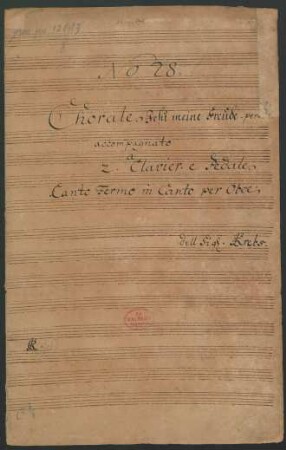 No 28.
Chorale, Jesu meine Freude. per
accompagnato
2. Clavier e Pedale,
Canto Fermo in Canto per Oboe,
dell Sigl. Krebs.